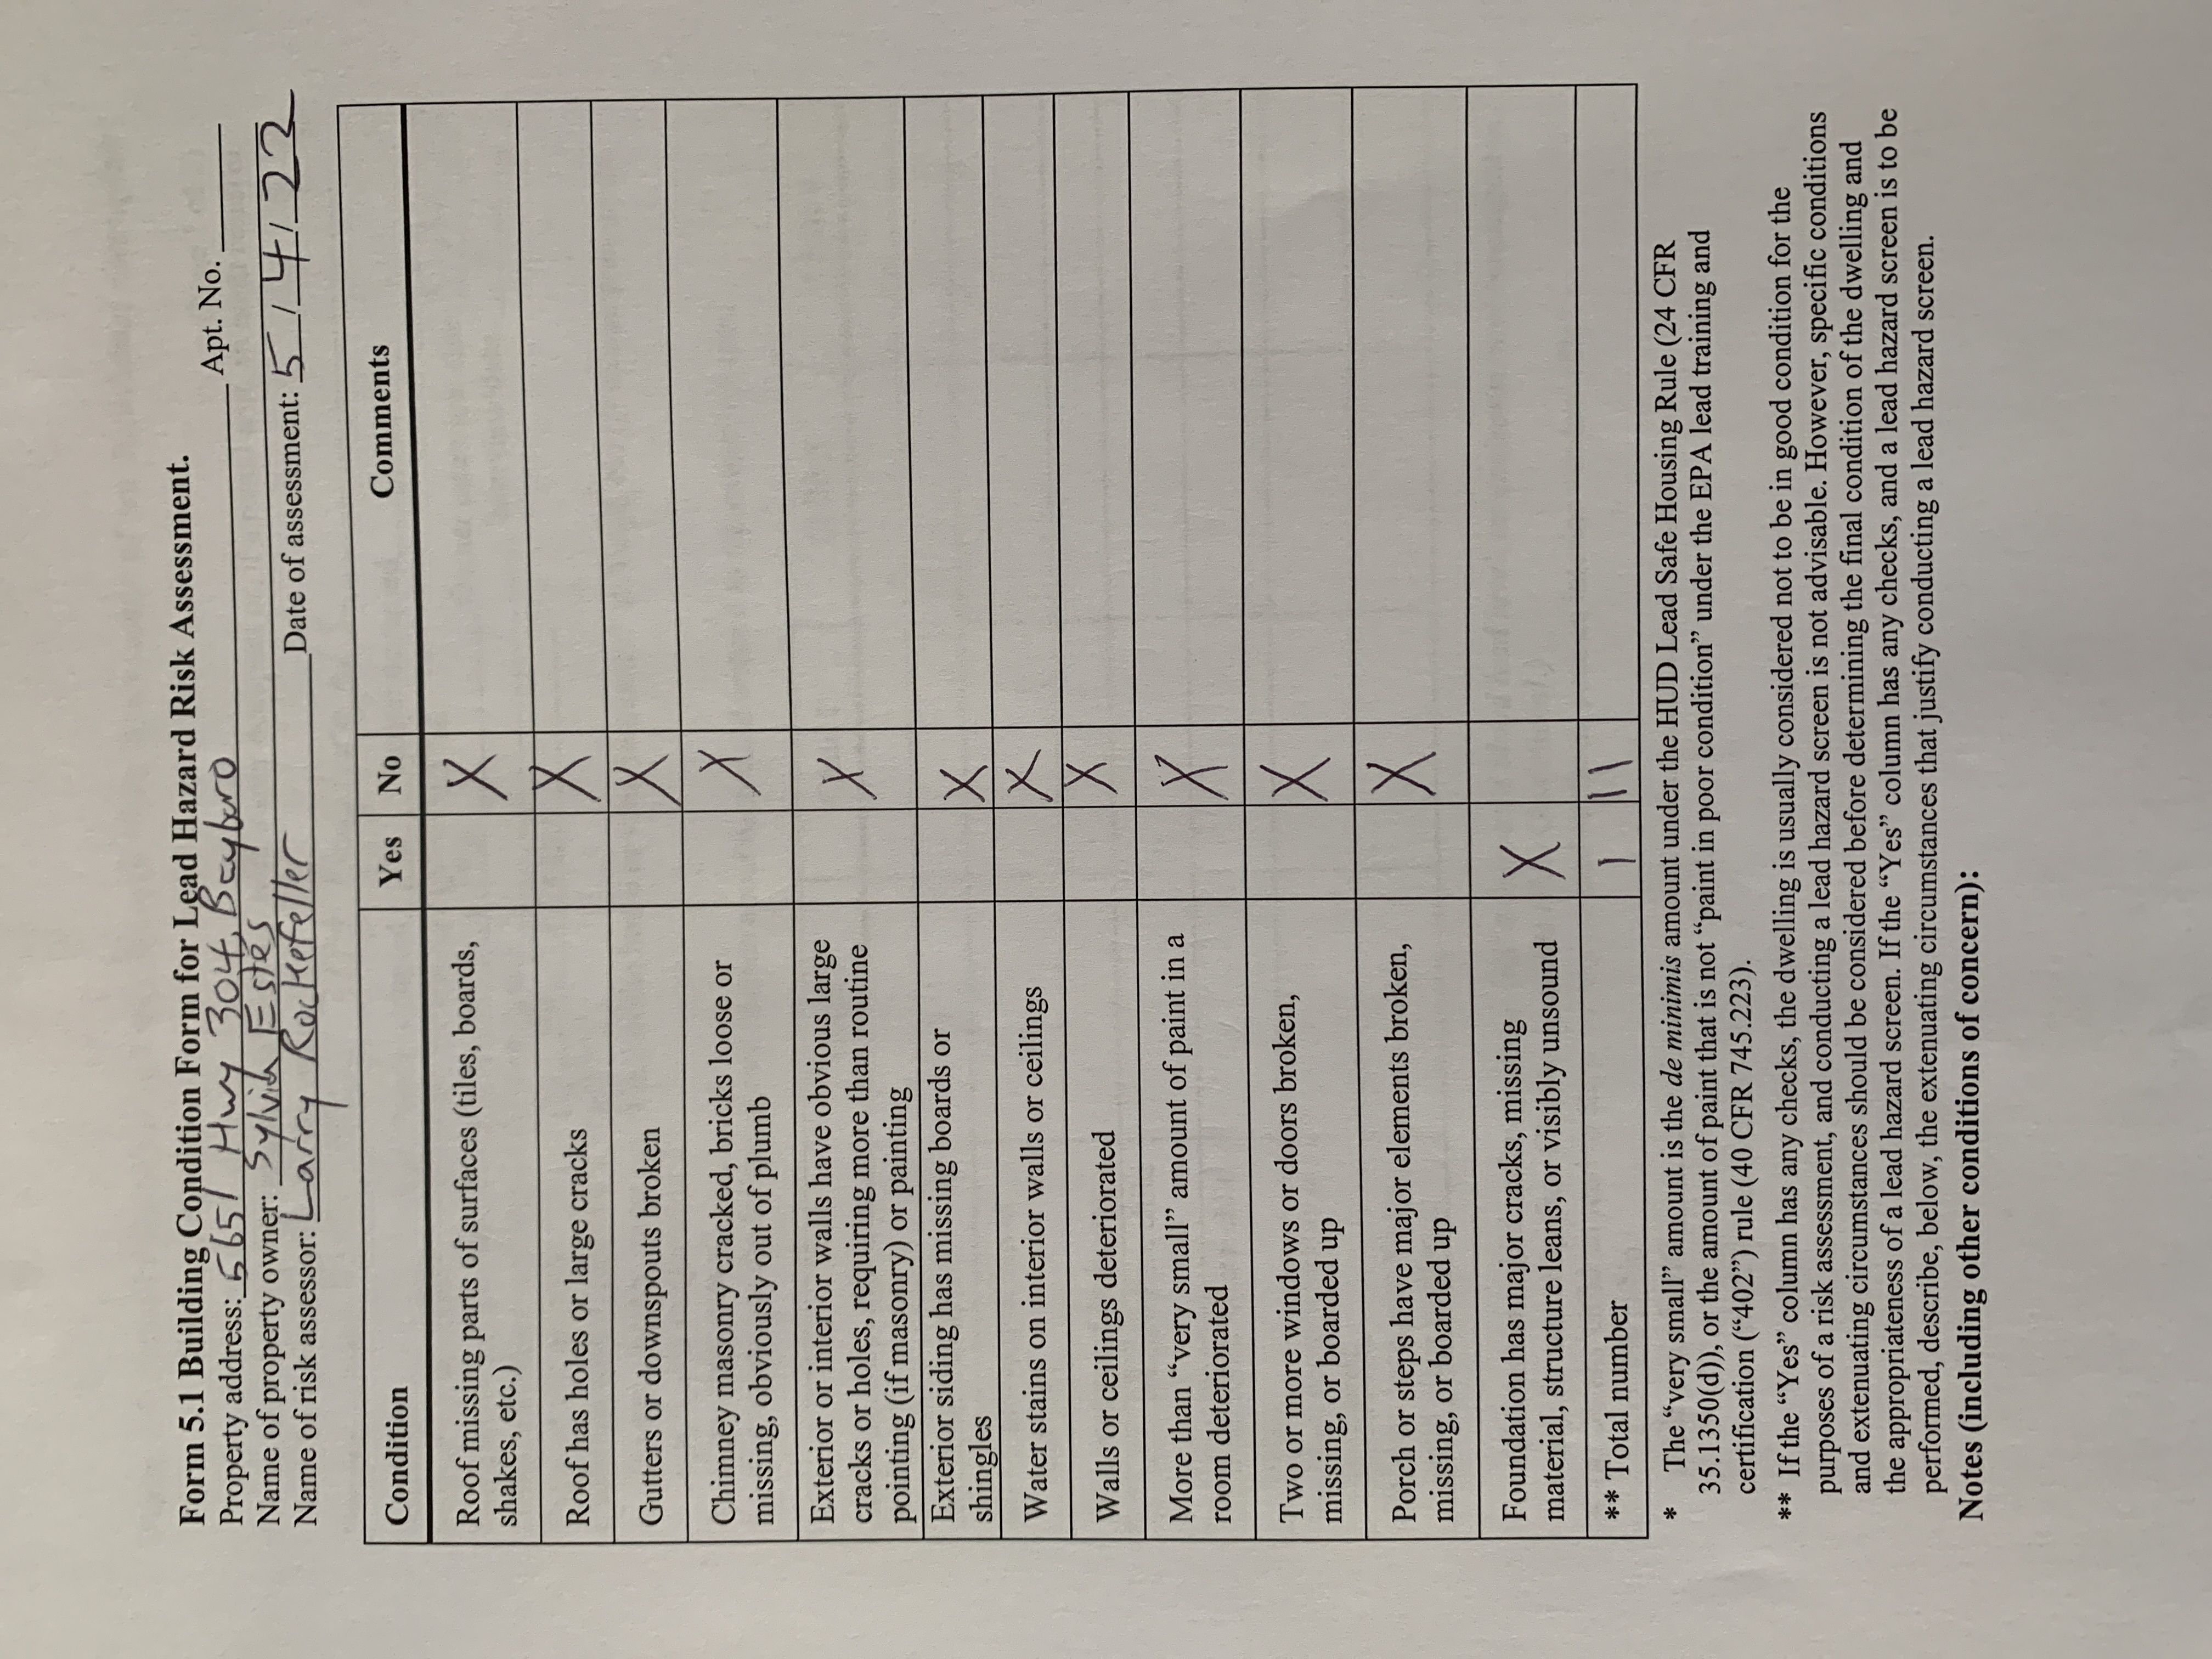 Form 5.1 Building Condition Form for Lead Hazard Risk Assessment.
Property address: 5651 Hwy 304, Bayboro Apt. No.
Name of property owner: Sylvia Estes
Name of risk assessor: Larry Rockefeller Date of assessment: 5 / 4 / 22
Condition Yes No Comments
Roof missing parts of surfaces (tiles, boards,
shakes, etc.) X
Roof has holes or large cracks X
Gutters or downspouts broken X
Chimney masonry cracked, bricks loose or
missing, obviously out of plumb X
Exterior or interior walls have obvious large
cracks or holes, requiring more than routine X
pointing (if masonry) or painting
Exterior siding has missing boards or
shingles X
Water stains on interior walls or ceilings X
Walls or ceilings deteriorated X
More than “very small” amount of paint in a
room deteriorated X
Two or more windows or doors broken,
missing, or boarded up X
Porch or steps have major elements broken,
missing, or boarded up X
Foundation has major cracks, missing
material, structure leans, or visibly unsound X
** Total number 1 11
* The “very small” amount is the de minimis amount under the HUD Lead Safe Housing Rule (24 CFR
35.1350(d)), or the amount of paint that is not “paint in poor condition” under the EPA lead training and
certification (“402”) rule (40 CFR 745.223).
** If the “Yes” column has any checks, the dwelling is usually considered not to be in good condition for the
purposes of a risk assessment, and conducting a lead hazard screen is not advisable. However, specific conditions
and extenuating circumstances should be considered before determining the final condition of the dwelling and
the appropriateness of a lead hazard screen. If the “Yes” column has any checks, and a lead hazard screen is to be
performed, describe, below, the extenuating circumstances that justify conducting a lead hazard screen.
Notes (including other conditions of concern):